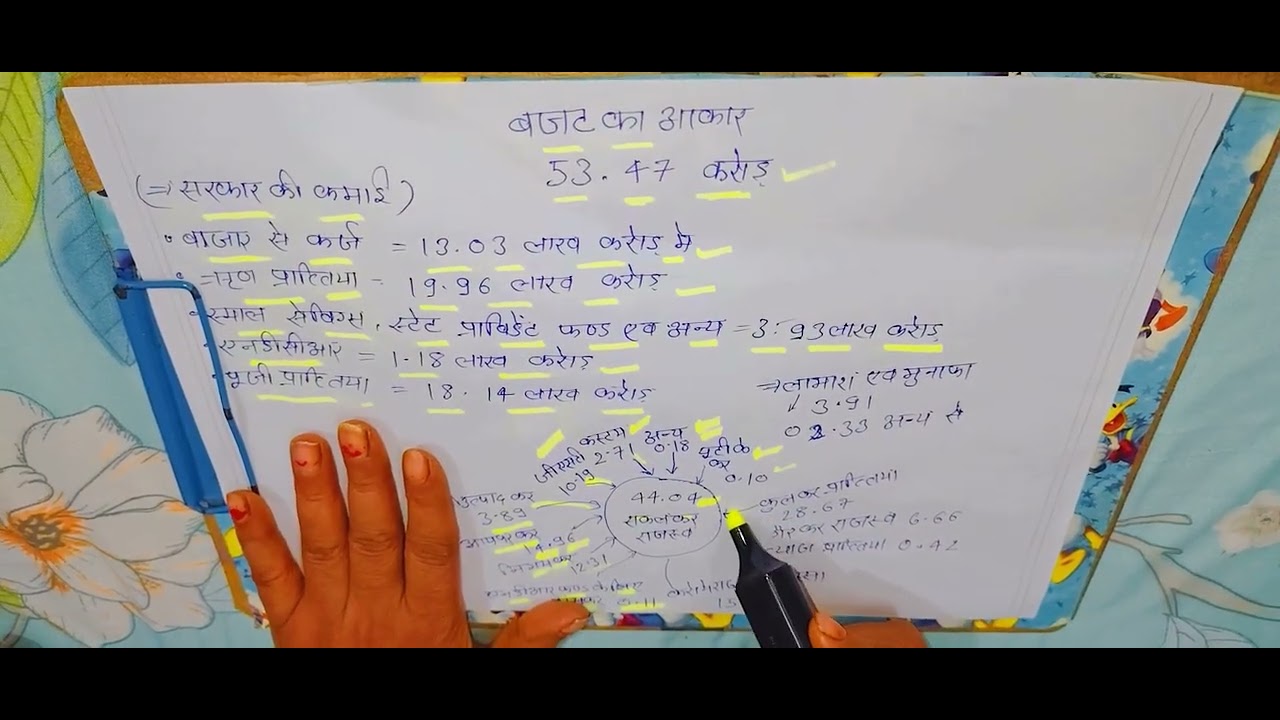 बजट का आकार
53.47 करोड़
(⇒ सरकार की कमाई)
• बाजार से कर्ज = 13.03 लाख करोड़ मे
• ऋण प्राप्तिया = 19.96 लाख करोड़
• स्माल सेविंग्स, स्टेट प्राविडेंट फण्ड एव अन्य = 3.93 लाख करोड़
• एनडीसीआर = 1.18 लाख करोड़
• पूजी प्राप्तिया = 18.14 लाख करोड़
⇒ लाभाशं एव मुनाफा
3.91
02.33 अन्य से
जीएसटी 10.19
कस्टम 2.71
अन्य 0.18
यूटी के कर 0.10
उत्पाद कर 3.89
44.04
सकल कर
राजस्व
आयकर 14.96
निगम कर 12.31
0.11
कुल कर प्राप्तिया
28.67
गैर कर राजस्व 6.66
ब्याज प्राप्तिया 0.42